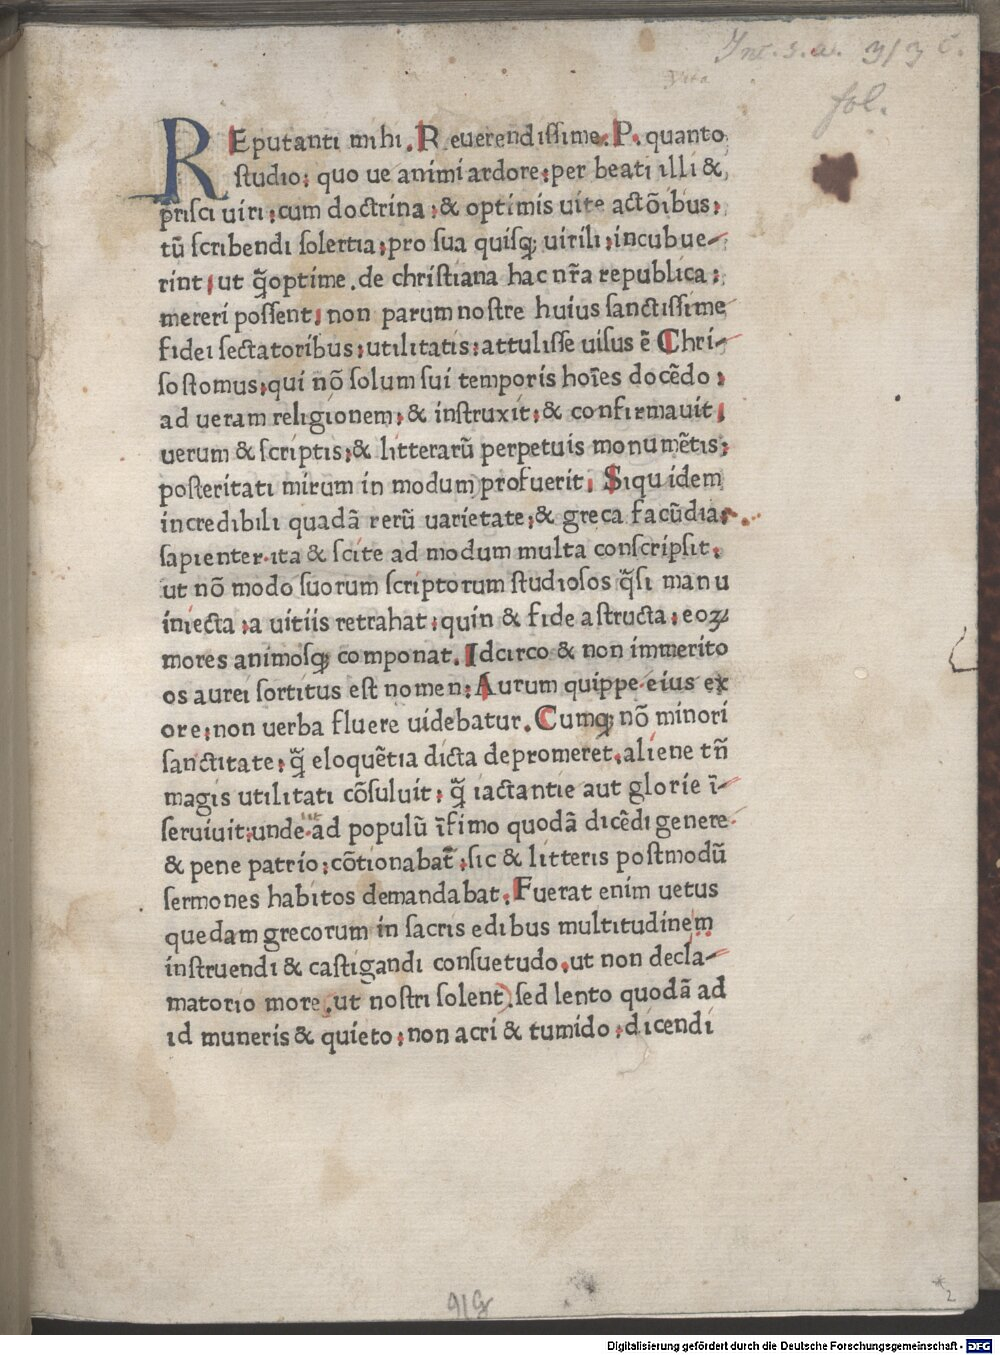 Inc. s. a. 313 c.
fol.
REputanti mihi. Reuerendissime. P. quanto
studio: quo ue animi ardore: per beati illi &
prisci uiri: cum doctrina: & optimis uite actõibus:
tũ scribendi solertia: pro sua quisq; uirili: incubue-
rint: ut q̃optime. de christiana hac nr̃a republica:
mereri possent: non parum nostre huius sanctissime
fidei sectatoribus: utilitatis: attulisse uisus ẽ Chri-
sostomus: qui nõ solum sui temporis hoĩes docẽdo:
ad ueram religionem: & instruxit: & confirmauit:
uerum & scriptis: & litterarũ perpetuis monumẽtis:
posteritati mirum in modum profuerit. Siquidem
incredibili quadã rerũ uarietate: & greca facũdia:
sapienter. ita & scite ad modum multa conscripsit:
ut nõ modo suorum scriptorum studiosos q̃si manu
iniecta: a uitiis retrahat: quin & fide astructa: eoꝝ
mores animosq; componat. Idcirco & non immerito
os aurei sortitus est nomen: Aurum quippe eius ex
ore: non uerba fluere uidebatur. Cumq; nõ minori
sanctitate: q̃ eloquẽtia dicta depromeret. aliene tñ
magis utilitati cõsuluit: q̃ iactantie aut glorie ĩ-
seruiuit: unde ad populũ ĩfimo quodã dicẽdi genere
& pene patrio: cõtionabat̃: sic & litteris postmodũ
sermones habitos demandabat. Fuerat enim uetus
quedam grecorum in sacris edibus multitudinem
instruendi & castigandi consuetudo. ut non decla-
matorio more (ut nostri solent) sed lento quodã ad
id muneris & quieto: non acri & tumido: dicendi
2
Digitalisierung gefördert durch die Deutsche Forschungsgemeinschaft - DFG